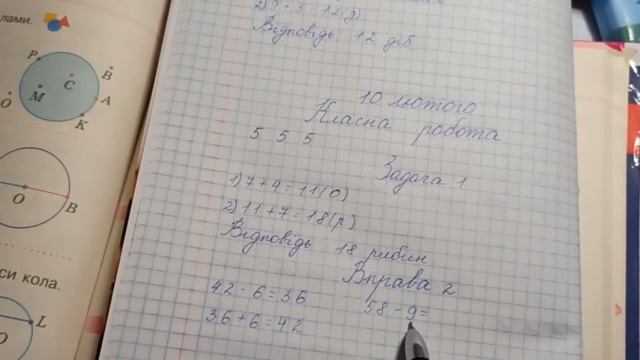 лами.
P
B
C
M
A
O
K
O
B
си кола.
L
O
Відповідь 12 діб
10 лютого
Класна робота
5 5 5
Задача 1
1) 7+4=11(О)
2) 11+7=18(р)
Відповідь 18 рибин
Вправа 2
42-6=36
58-9=
36+6=42